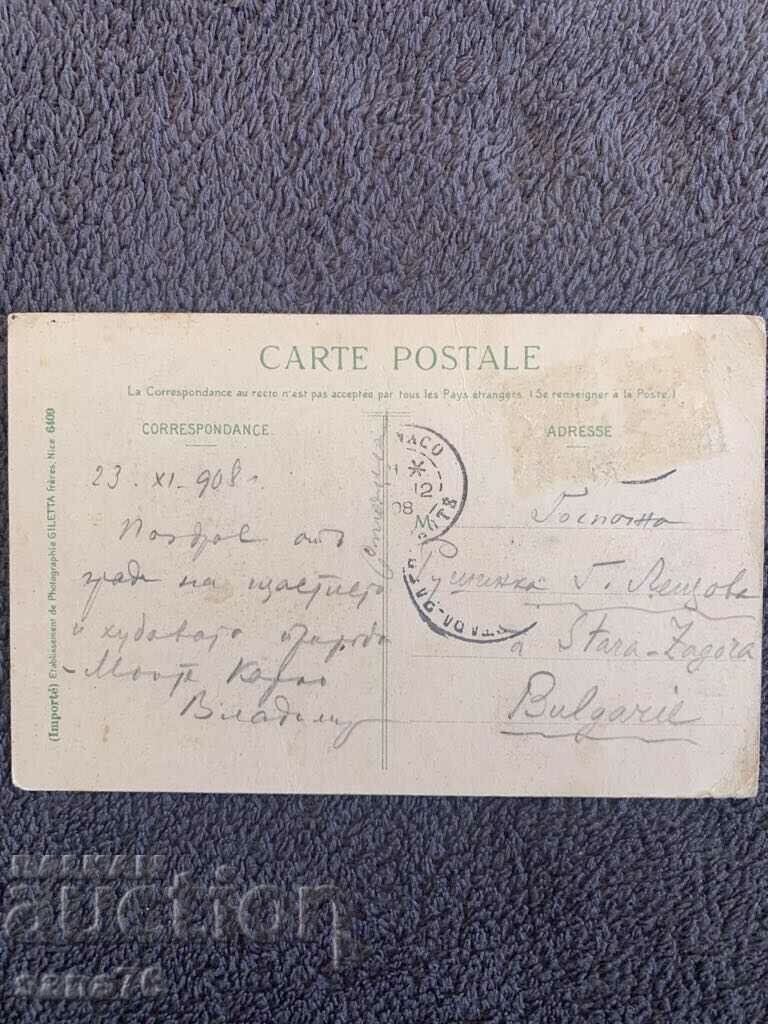 CARTE POSTALE
La Correspondance au recto n'est pas acceptée par tous les Pays étrangers. (Se renseigner à la Poste.)
CORRESPONDANCE.
ADRESSE
23. XI. 908
Поздрав отъ
града на щастието
и хубавата природа
Монте Карло
Владимир
Госпожа
Г.
à Stara-Zagora
Bulgarie
NACO
12
08
(Importé) Etablissement de Photographie GILETTA frères, Nice 6400
BALKAN
auction
sane76